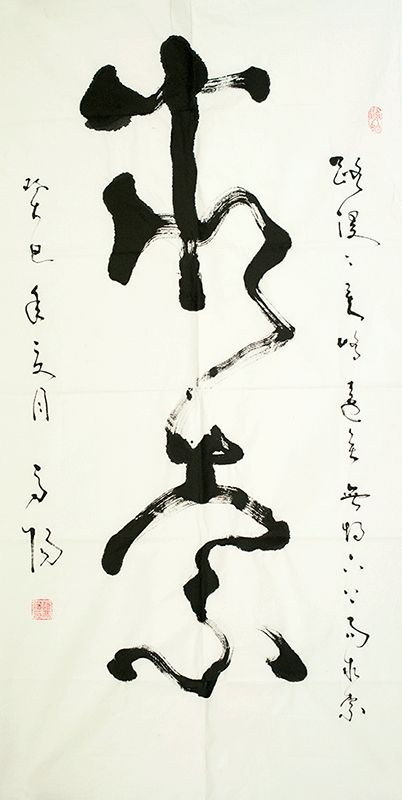 路漫漫其修遠兮吾將上下而求索
求索
癸巳年夏月